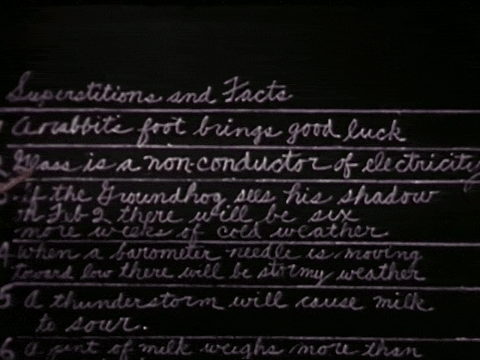 Superstitions and Facts
1 A rabbit's foot brings good luck
2 Glass is a non-conductor of electricity
3. if the Groundhog sees his shadow
on Feb 2 there will be six
more weeks of cold weather
4 when a barometer needle is moving
toward low there will be stormy weather
5 A thunderstorm will cause milk
to sour.
6 a pint of milk weighs more than